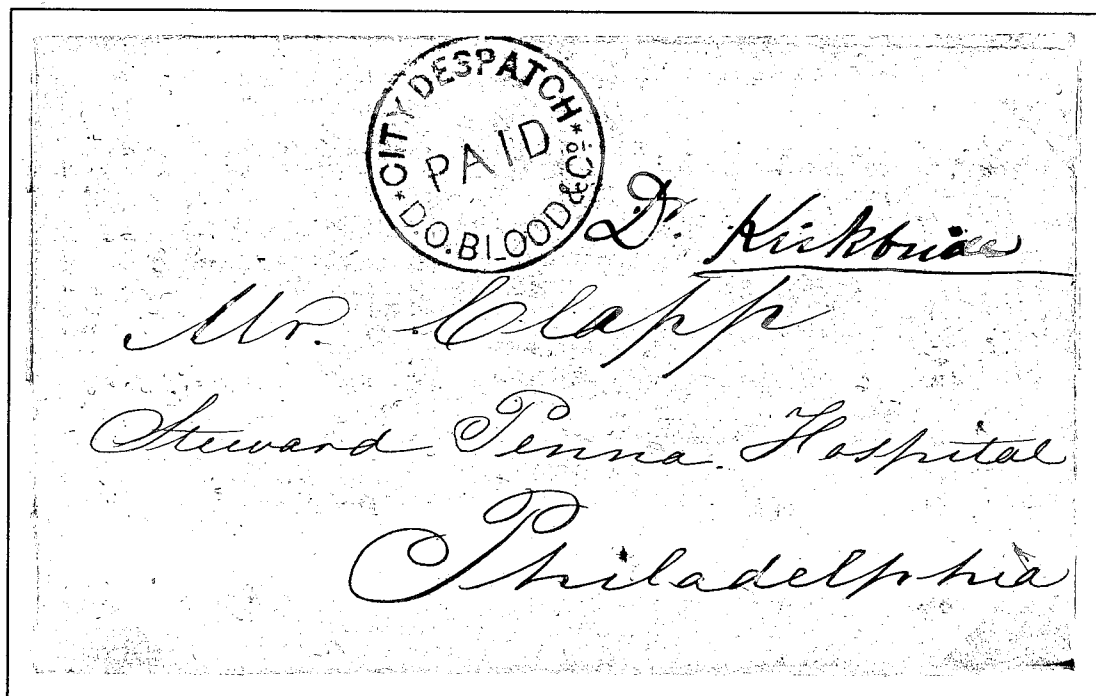 *CITY DESPATCH*
PAID
D.O. BLOOD & Co.
Dr. Kirkbride
Mr. Clapp
Steward Penna. Hospital
Philadelphia